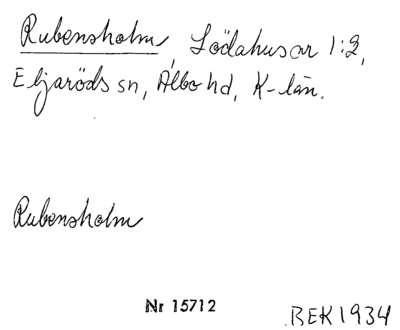 Rubensholm, Lödahusar 1:2,
Eljaröds sn, Albo hd, K-län.
Rubensholm
Nr 15712
BEK 1934